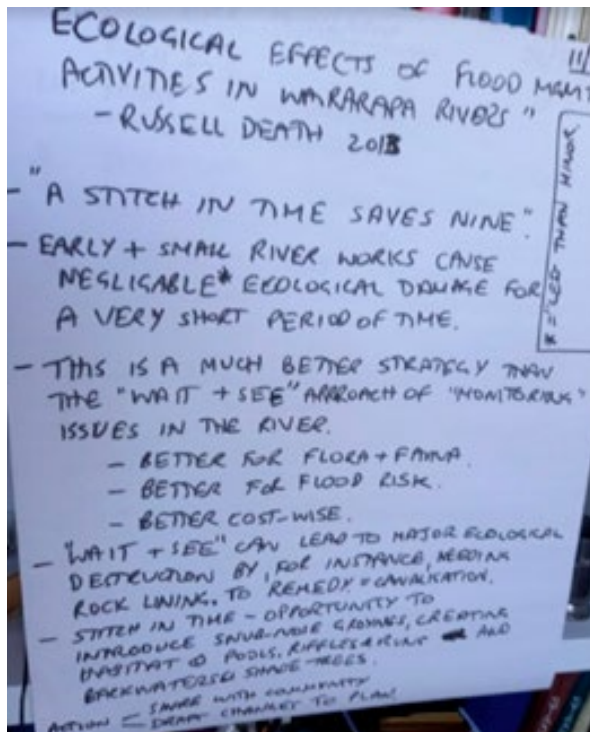 ECOLOGICAL EFFECTS OF FLOOD MGMT
ACTIVITIES IN WAIRARAPA RIVERS"
- RUSSELL DEATH 2013
11/
- "A STITCH IN TIME SAVES NINE".
- EARLY + SMALL RIVER WORKS CAUSE
NEGLIGABLE* ECOLOGICAL DAMAGE FOR
A VERY SHORT PERIOD OF TIME.
* = "LESS THAN MINOR
- THIS IS A MUCH BETTER STRATEGY THAN
THE "WAIT + SEE" APPROACH OF "MONITORING"
ISSUES IN THE RIVER.
- BETTER FOR FLORA + FAUNA.
- BETTER FOR FLOOD RISK.
- BETTER COST-WISE.
- "WAIT + SEE" CAN LEAD TO MAJOR ECOLOGICAL
DESTRUCTION BY, FOR INSTANCE, NEEDING
ROCK LINING, TO REMEDY = CANALISATION.
- STITCH IN TIME - OPPORTUNITY TO
INTRODUCE GROYNES, CREATING
HABITAT POOLS, RIFFLES & RUNS AND
BACKWATERS & SHADE-TREES.
ACTION - SHARE WITH COMMUNITY
- DRAFT CHANGES TO PLAN!